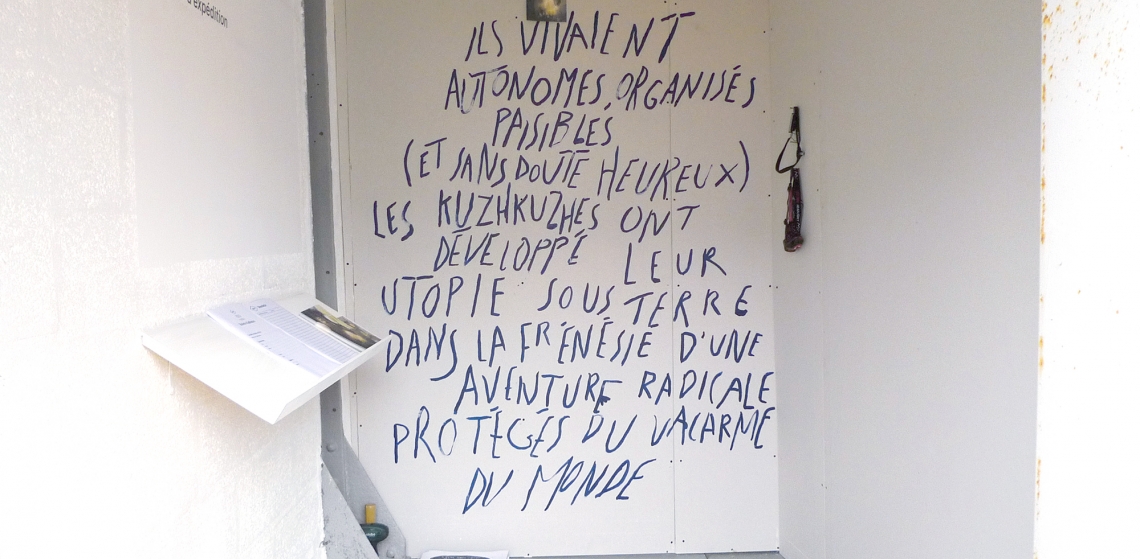 d'expédition
ILS VIVAIENT
AUTONOMES, ORGANISÉS
PAISIBLES
(ET SANS DOUTE HEUREUX)
LES KUZHKUZHES ONT
DÉVELOPPÉ LEUR
UTOPIE SOUS TERRE
DANS LA FRÉNÉSIE D'UNE
AVENTURE RADICALE
PROTÉGÉS DU VACARME
DU MONDE